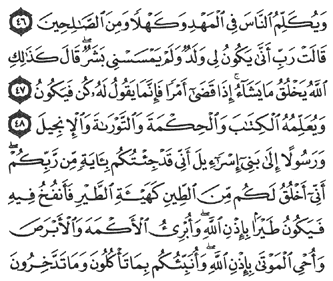 وَيُكَلِّمُ النَّاسَ فِي الْمَهْدِ وَكَهْلًا وَمِنَ الصَّالِحِينَ ٤٦
قَالَتْ رَبِّ أَنَّىٰ يَكُونُ لِي وَلَدٌ وَلَمْ يَمْسَسْنِي بَشَرٌ ۖ قَالَ كَذَٰلِكِ
اللَّهُ يَخْلُقُ مَا يَشَاءُ ۚ إِذَا قَضَىٰ أَمْرًا فَإِنَّمَا يَقُولُ لَهُ كُن فَيَكُونُ ٤٧
وَيُعَلِّمُهُ الْكِتَابَ وَالْحِكْمَةَ وَالتَّوْرَاةَ وَالْإِنجِيلَ ٤٨
وَرَسُولًا إِلَىٰ بَنِي إِسْرَائِيلَ أَنِّي قَدْ جِئْتُكُم بِآيَةٍ مِّن رَّبِّكُمْ ۖ
أَنِّي أَخْلُقُ لَكُم مِّنَ الطِّينِ كَهَيْئَةِ الطَّيْرِ فَأَنفُخُ فِيهِ
فَيَكُونُ طَيْرًا بِإِذْنِ اللَّهِ ۖ وَأُبْرِئُ الْأَكْمَهَ وَالْأَبْرَصَ
وَأُحْيِي الْمَوْتَىٰ بِإِذْنِ اللَّهِ ۖ وَأُنَبِّئُكُم بِمَا تَأْكُلُونَ وَمَا تَدَّخِرُونَ